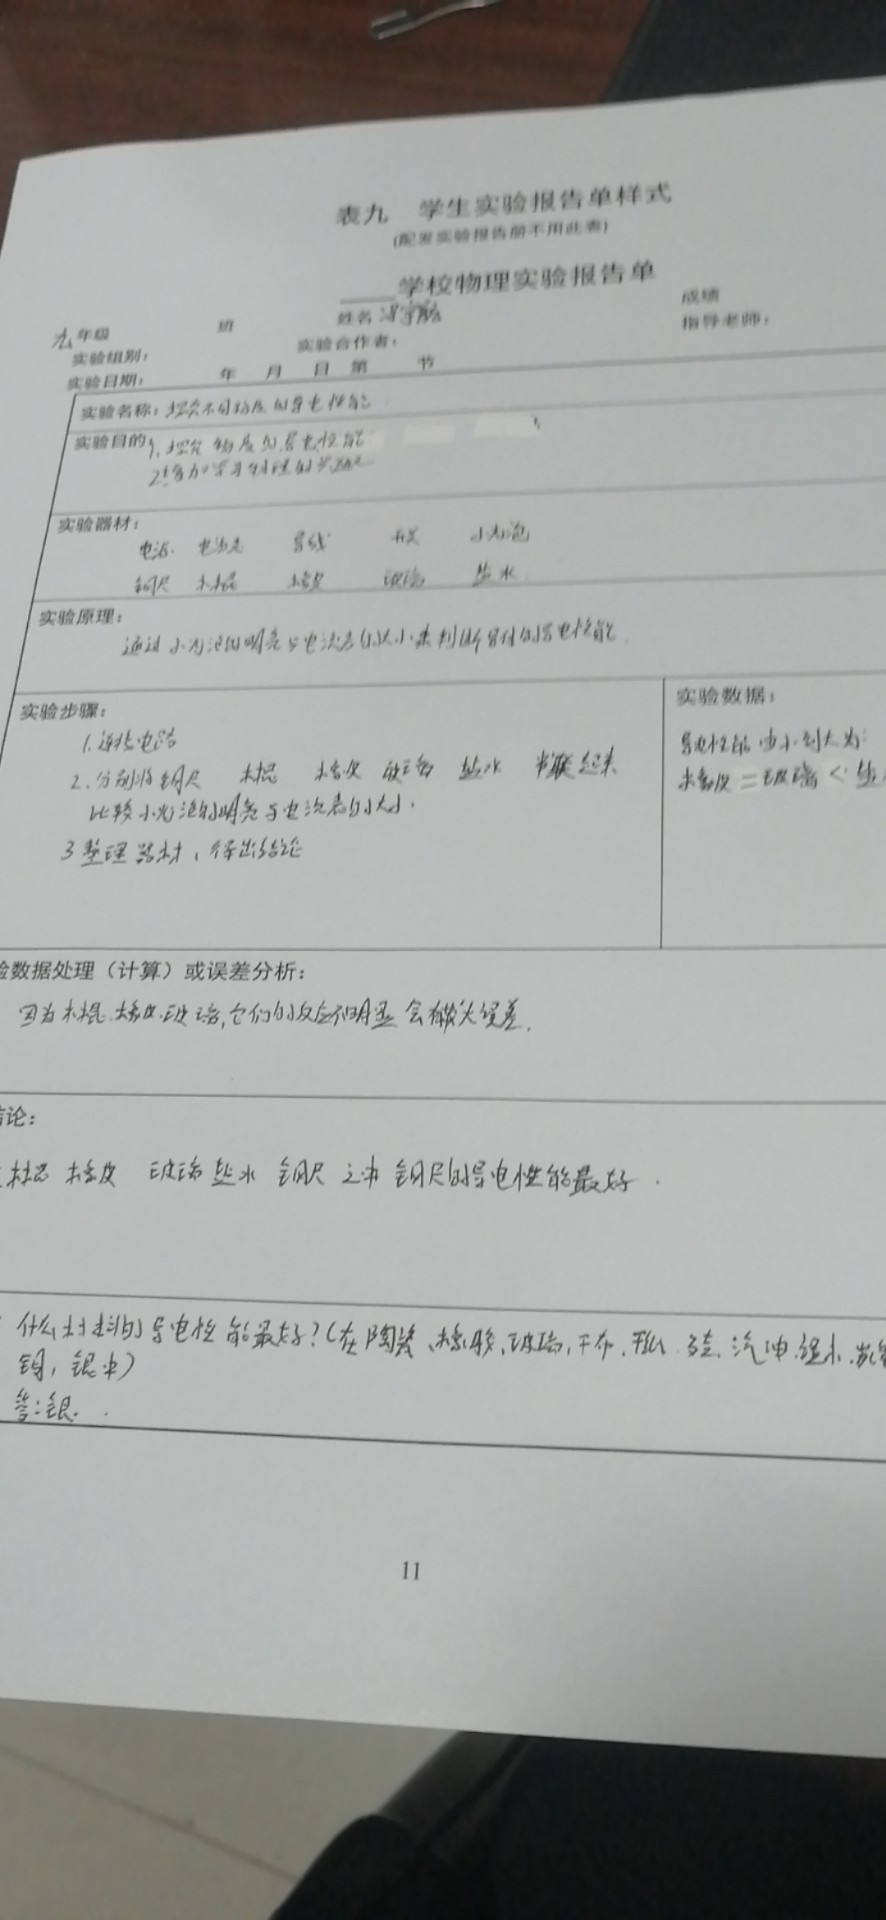 表九 学生实验报告单样式
(配发实验报告册不用此表)
学校物理实验报告单
成绩
九年级 班 姓名
指导老师:
实验组别: 实验合作者:
实验日期: 年 月 日 第 节
实验名称:探究不同物质的导电性能
实验目的 1.探究物质的导电性能
2.增加学习物理的兴趣
实验器材:
电源 电流表 导线 开关 小灯泡
钢尺 木棍 橡皮 玻璃 盐水
实验原理:
通过小灯泡的明亮与电流表的大小来判断器材的导电性能.
实验步骤:
1.连接电路
2.分别将钢尺 木棍 橡皮 玻璃 盐水 串联起来
比较小灯泡的明亮与电流表的大小.
3 整理器材,得出结论
实验数据:
导电性能由小到大为:
橡皮=玻璃<盐
验数据处理(计算)或误差分析:
因为木棍.橡皮.玻璃,它们的反应不明显会有较大误差.
结论:
木棍 橡皮 玻璃 盐水 钢尺 之中 钢尺的导电性能最好.
什么材料的导电性能最好?(在陶瓷、橡胶、玻璃,干布、
铜,银中)
答:银.
11